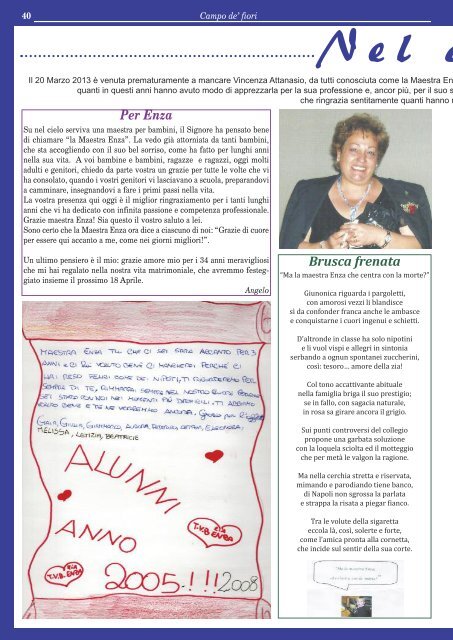 40
Campo de' fiori
Nel
Il 20 Marzo 2013 è venuta prematuramente a mancare Vincenza Attanasio, da tutti conosciuta come la Maestra En
quanti in questi anni hanno avuto modo di apprezzarla per la sua professione e, ancor più, per il suo s
che ringrazia sentitamente quanti hanno
Per Enza
Su nel cielo serviva una maestra per bambini, il Signore ha pensato bene
di chiamare "la Maestra Enza". La vedo già attorniata da tanti bambini,
che sta accogliendo con il suo bel sorriso, come ha fatto per lunghi anni
nella sua vita. A voi bambine e bambini, ragazze e ragazzi, oggi molti
adulti e genitori, chiedo da parte vostra un grazie per tutte le volte che vi
ha consolato, quando i vostri genitori vi lasciavano a scuola, preparandovi
a camminare, insegnandovi a fare i primi passi nella vita.
La vostra presenza qui oggi è il miglior ringraziamento per i tanti lunghi
anni che vi ha dedicato con infinita passione e competenza professionale.
Grazie maestra Enza! Sia questo il vostro saluto a lei.
Sono certo che la Maestra Enza ora dice a ciascuno di noi: "Grazie di cuore
per essere qui accanto a me, come nei giorni migliori!".
Un ultimo pensiero è il mio: grazie amore mio per i 34 anni meravigliosi
che mi hai regalato nella nostra vita matrimoniale, che avremmo festeg-
giato insieme il prossimo 18 Aprile.
Angelo
MAESTRA ENZA TU CHE CI SEI STATA ACCANTO PER 3
ANNI E CI HAI VOLUTO BENE CI MANCHERAI PERCHÈ CI
HAI RESO FELICI COME DEI NIPOTI, TI RICORDEREMO PER
SEMPRE
VOLUTO BENE E TE NE VORREMO ANCORA.
GAIA, GIULIA, GIANMARCO, AURORA, ELEONORA,
MELISSA, LETIZIA, BEATRICE
ALUNNI
ANNO
2005-!!!2008
T.V.B. ZIA ENZA
ZIA T.V.B. ENZA
Brusca frenata
"Ma la maestra Enza che centra con la morte?"
Giunonica riguarda i pargoletti,
con amorosi vezzi li blandisce
sì da confonder franca anche le ambasce
e conquistarne i cuori ingenui e schietti.
D'altronde in classe ha solo nipotini
e li vuol vispi e allegri in sintonia
serbando a ognun spontanei zuccherini,
così: tesoro... amore della zia!
Col tono accattivante abituale
nella famiglia briga il suo prestigio;
se in fallo, con sagacia naturale,
in rosa sa girare ancora il grigio.
Sui punti controversi del collegio
propone una garbata soluzione
con la loquela sciolta ed il motteggio
che per metà le valgon la ragione.
Ma nella cerchia stretta e riservata,
mimando e parodiando tiene banco,
di Napoli non sgrossa la parlata
e strappa la risata a piegar fianco.
Tra le volute della sigaretta
eccola là, così, solerte e forte,
come l'amica pronta alla cornetta,
che incide sul sentir della sua corte.